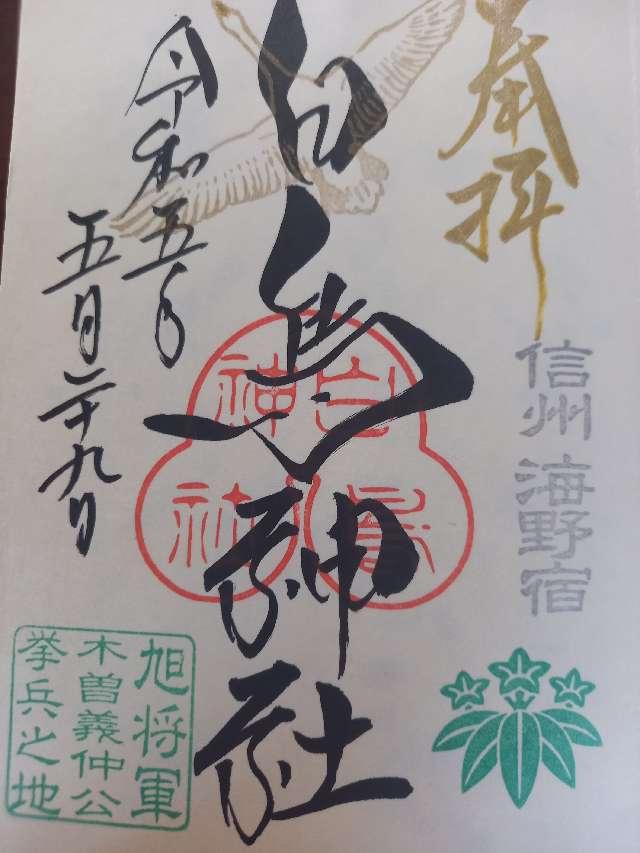 奉拝
信州 海野宿
白鳥神社
白鳥
神社
令和五年
五月二十九日
旭将軍
木曽義仲公
挙兵之地